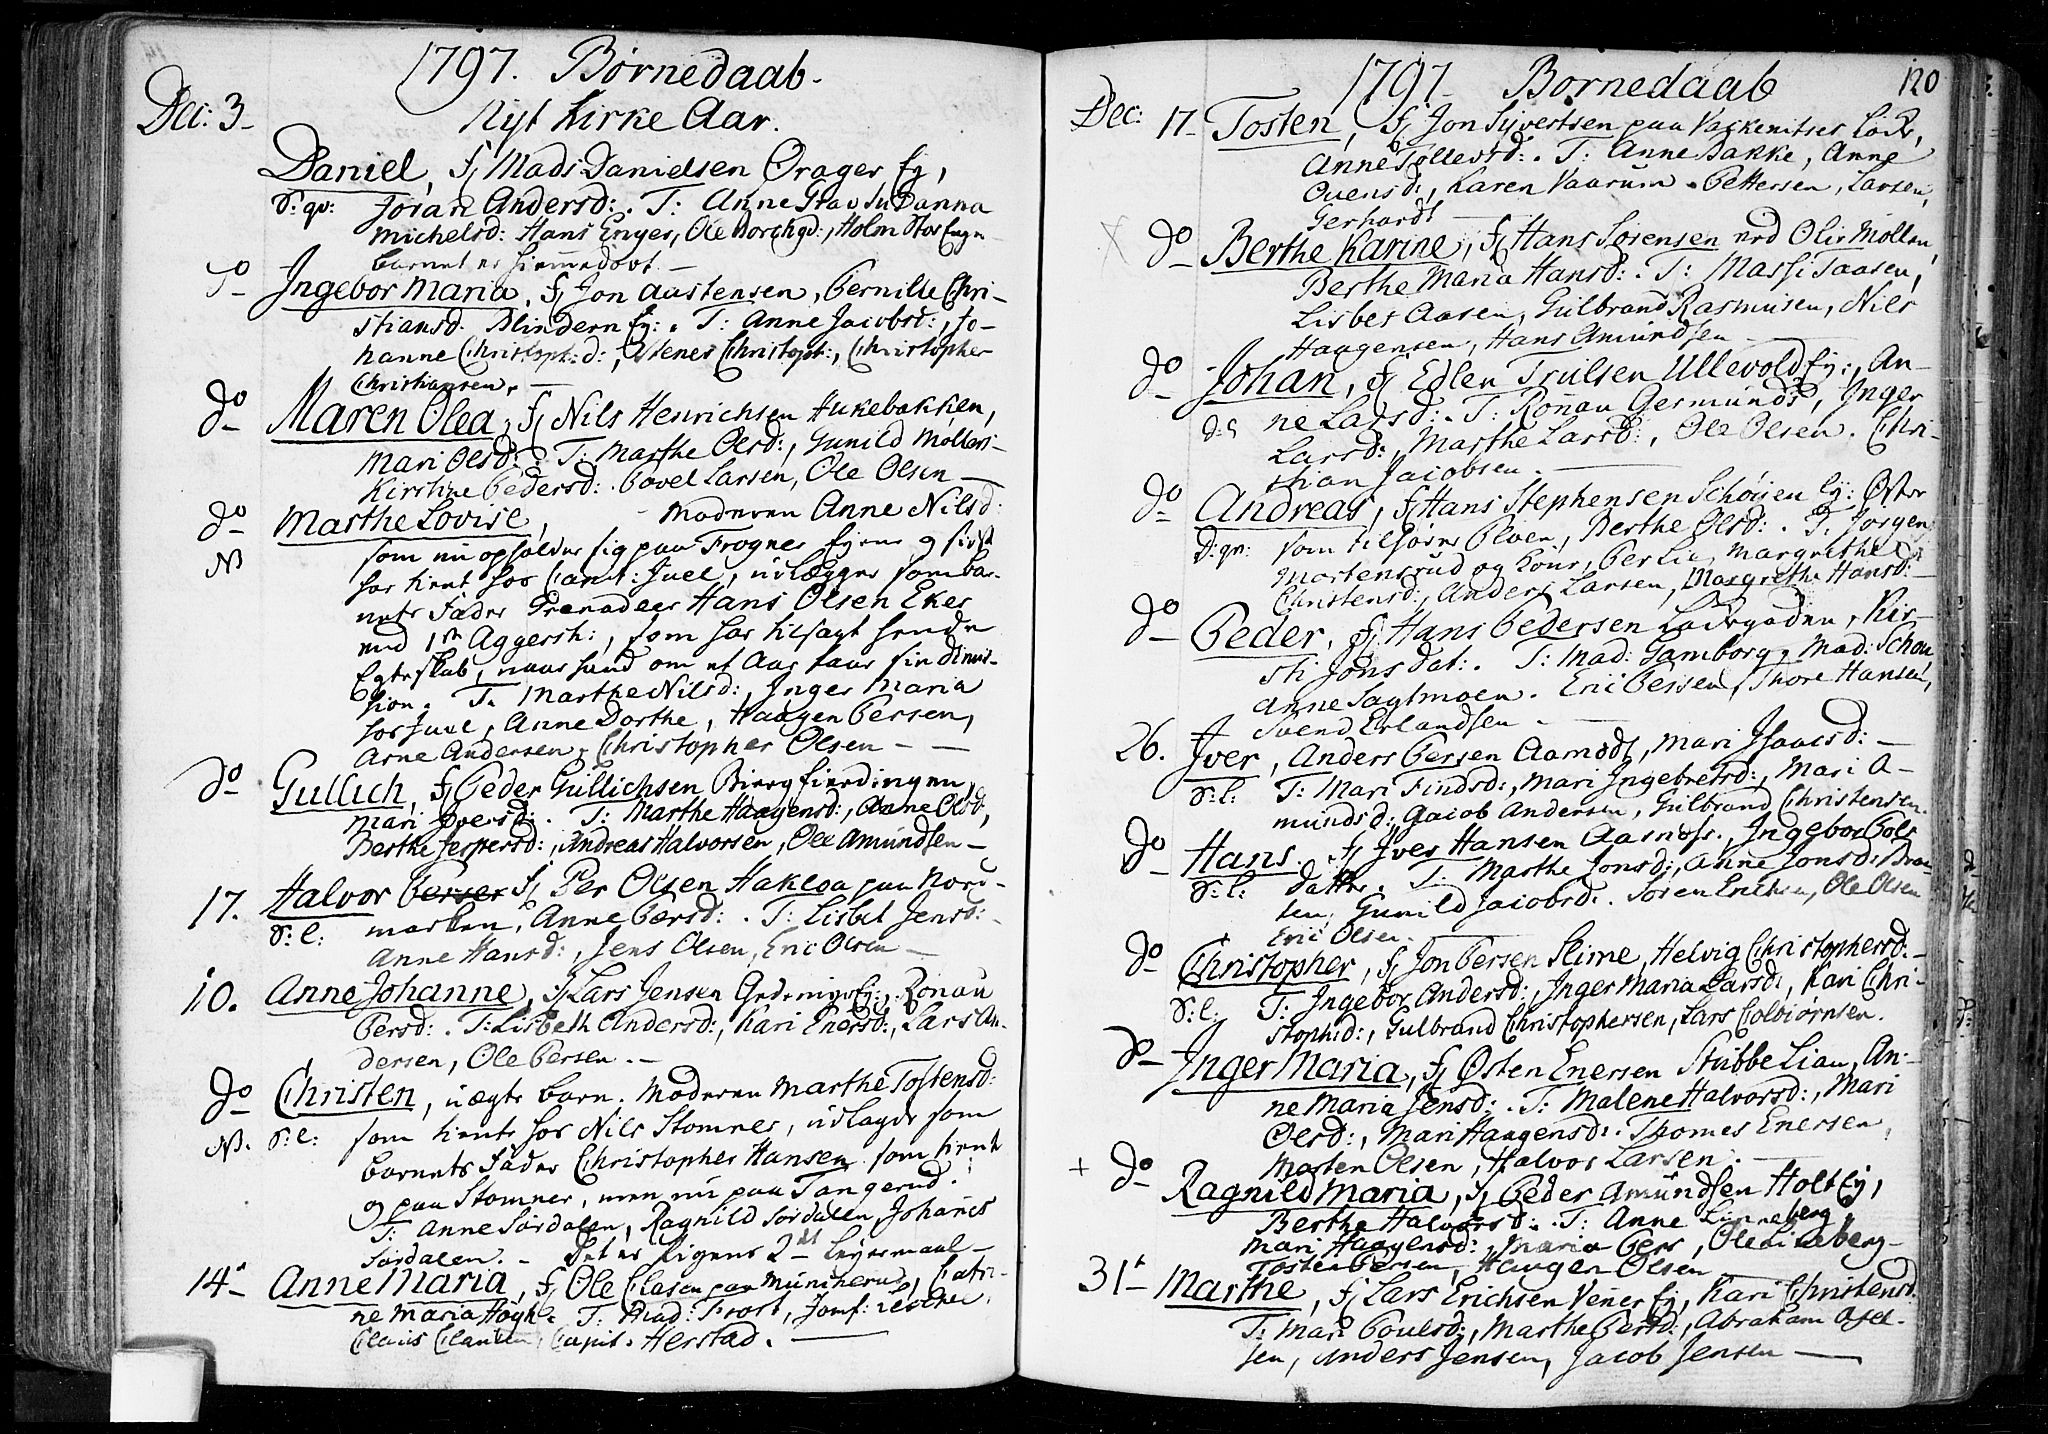 1797. Børnedaab.
Dec: 3. Nyt Kirke Aar.
Daniel, f/ Mads Danielsen Örager Ey,
Joran Andersd:. T: Anne
Michelsd: Hans Enger, Ole Borchgd:, Holm
barnet er hiemedøbt.
do Ingebor Maria, f/ Jon Austensen, Pernille Chri-
stiansd. Blindern Ey:. T: Anne Jacobsd:, Jo-
hanne Christoph:d:, Christoph:, Christopher
Christiansen.
do Maren Olea, f/ Nils Henrichsen Hukebakken,
Mari Olsd:. T: Marthe Olsd:, Gunild
Kirstine Pedersd:. Povel Larsen, Ole Olsen
do Marthe Lovise, Moderen Anne Nilsd:
NB som nu opholder sig paa Frogner Eyene og sidst
har tient hos Capit: Juel, udlægger som bar-
nets Fader Grenadeer Hans Olsen Eker
ved 1ste Aggersh:, som har tilsagt hende
Egteskab, naar hand om et Aar faar sin dimis-
sion. T. Marthe Nilsd:, Inger Maria
hos Juel, Anne Dorthe, Haagen Persen,
Arne Andersen, Christopher Olsen
do Gullich, f/ Peder Gullichsen Biergfierdingen,
Mari Iversd:. T: Marthe Haagensd:, Anne Olsd:,
Berthe Jespersd:, Andreas Halvorsen, Ole Amundsen
17. Halvor Perser f/ Per Olsen Hakloa paa Nord-
D: l: marken, Anne Persd:. T: Lisbet Jensd:
Anne Hansd:, Jens Olsen, Eric Olsen
10. Anne Johanne, f/ Lars Jensen Ey:, Ronau
Persd:. T: Lisbeth Andersd:, Kari Enersd:, Lars An-
dersen, Ole Persen.
do Christen, uægte barn. Moderen Marthe Tostensd:
NB. D: l: som tiente hos Nils Stomner, udlagde som
barnets Fader Christopher Hansen som tient
og paa Stomner, men nu paa Tangerud.
T: Anne Sørdalen, Ragnild Sørdalen, Johanes
Sørdalen. Det er Pigens 2det Leyermaal
14. Anne Maria, f/ Ole Clasen paa Munkerud, Catri-
ne Maria Høgh. T: Mad: Frost, Jomf:
Claus Clausen, Capit. Herstad.
1797 Børnedaab 120
Dec: 17. Tosten, f/ Jon Syvertsen paa
Anne Tollevsd:. T: Anne Bakke, Anne
Ovensd:, Karen Vaarum. Pettersen, Larsen,
Gerhardt
do Berthe Karine, f/ Hans Sørensen ved Olie Møllen,
Berthe Maria Hansd:. T: Massi Taasen,
Lisbet Aasen, Gulbrand Rasmusen, Nils
Haagensen, Hans Amundsen
do Johan, f/ Edlen Trulsen Ullevold Ey:, An-
ne Larsd:. T: Ronau Germundsd, Inger
Larsd:, Marthe Larsd:, Ole Olsen. Chri-
stian Jacobsen.
do Andreas, f/ Hans Stephensen Schøyen Ey: Øster
som tilhører Pløen, Berthe Olsd:. T: Jørgen
Martensrud og Kone, Per Lie, Margrethe
Christensd:, Anders Larsen, Margrethe Hansd:
do Peder, f/ Hans Pedersen Ladegaden, Kir-
sti Jonsdat:. T: Mad: Tamborg, Mad: Schou
Anne Sagtmoen. Eric Persen, Thore Hansen,
Svend Erlandsen
26. Iver, Anders Persen Aamodt, Mari Isaacsd:
D: l: T: Mari Findsd:, Mari Ingebretsd:, Mari A-
mundsd: Jacob Andersen, Gulbrand Christensen.
do Hans. f/ Iver Hansen Aarnæss., Ingebor Pols
D: l: datter. T: Marthe Jonsd:, Anne Jonsd: Braa-
ten, Gunild Jacobsd:. Soren Ericksen, Ole Olsen
Eric Olsen.
do Christopher, f/ Jon Persen Slime, Helvig Christophersd:
D: l: T: Ingebor Andersd:, Inger Maria Larsd:, Kari Chri-
stophd:, Gulbrand Christophersen, Lars Colbiørnsen.
do Inger Maria, f/ Østen Enersen Stubbe Lian, An-
ne Maria Jensd:. T: Malene Halvorsd:, Mari
Olsd:, Mari Haagensd:. Thomes Enersen,
Morten Olsen, Halvor Larsen.
+ do Ragnild Maria, f/ Peder Amundsen Holt Ey,
Berthe Halvorsd:. T: Anne Linneberg,
Mari Haagensd:, Maria Pers, Ole Lineberg
Tosten Persen, Haagen Olsen
31. Marthe, f/ Lars Erichsen Vener Ey, Kari Christensd:
T: Mari Poulsd:, Marthe Persd:, Abraham Axel-
sen, Anders Jensen, Jacob Jensen